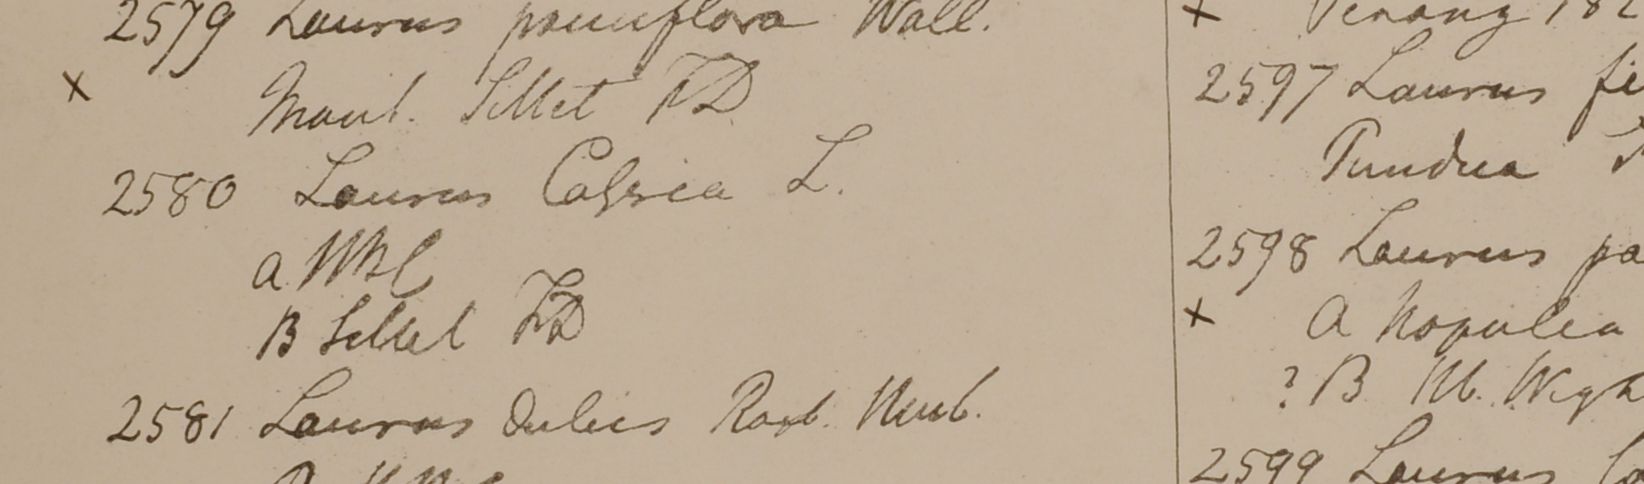 2579 Laurus pauciflora Wall.
x Mont. Sillet FD
2580 Laurus Cassia L.
a HBC
B Sillet FD
2581 Laurus dulcis Roxb. Herb.
x Penang 182
2597 Laurus
Pundua
2598 Laurus pa
x a Napalea
? B Hb. Wigh
2599 Laurus